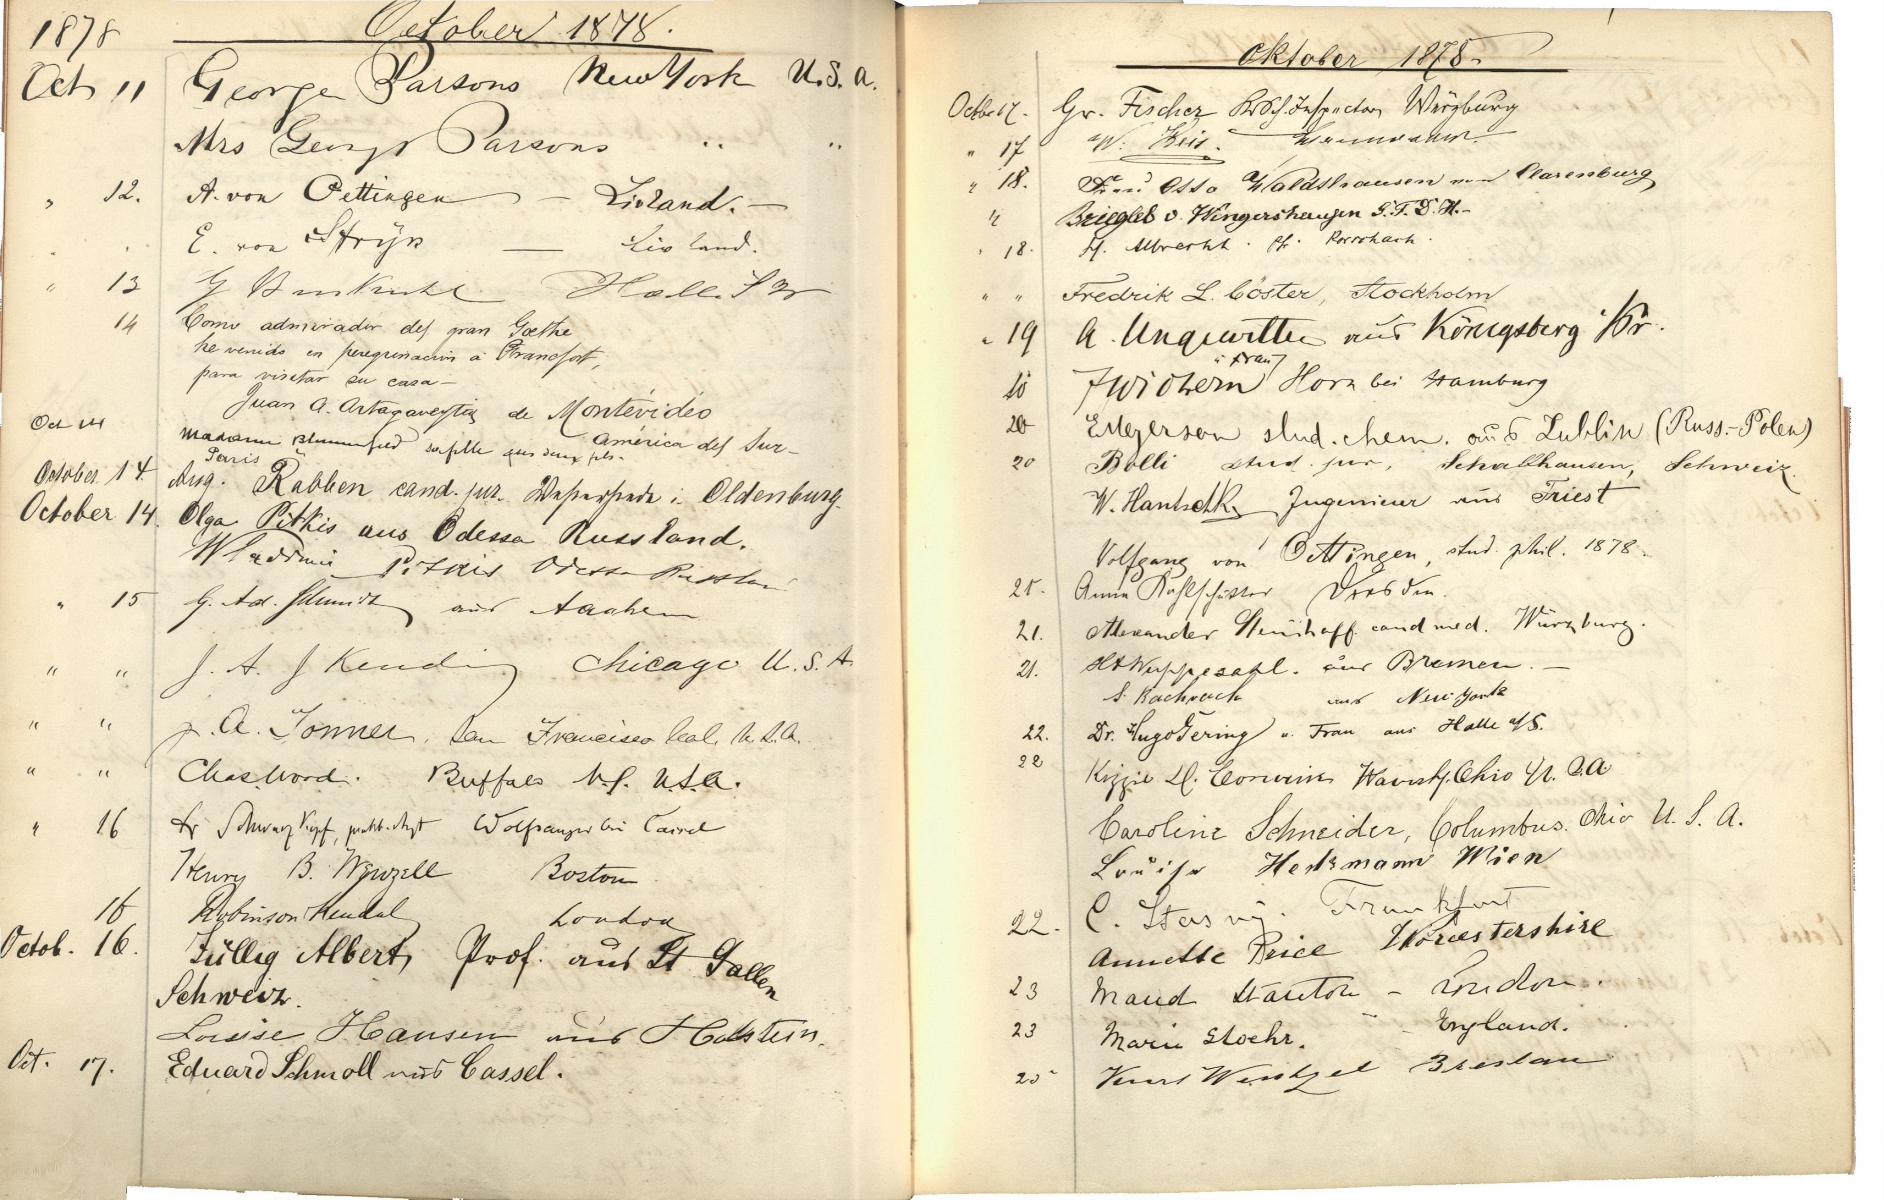 1878 October 1878.
Oct 11 George Parsons New York U.S.A.
Mrs George Parsons " "
" 12. A. von Oettingen — Livland. —
E. von Stryk — Livland.
" 13 Halle
14 Como admirador del gran Goethe
he venido en peregrinacion á Francfort,
para visitar su casa —
Juan A. Artagaveytia de Montévidéo
América del Sur —
Oct 14 Madame Blumenfeld sa fille ses deux fils.
Paris
October 14. Aug. Rabben cand. jur. i. Oldenburg.
October 14. Olga Pitkis aus Odessa Russland.
Wladimir Pitkis Odessa Russland
" 15 G. Ad. Schmidt aus Aachen
" " J. A. J Chicago U.S.A
" " J. A. Tonner, San Francisco Cal. U.S.A.
" " Chas Word. Buffalo N.Y. U.S.A.
" 16 Dr Schwarzkopf, prakt. Arzt Wolfsanger bei Cassel
Henry B. Boston
16 Robinson Kendal London
Octob. 16. Züllig Albert, Prof. aus St Gallen
Schweiz.
Louise Hansen aus Holstein.
Oct. 17. Eduard Schmoll aus Cassel.
Oktober 1878.
Octbr 17. Gr. Fischer Inspector Würzburg
" 17 W.
" 18. Frau Otto Waldthausen von Clarenburg
" Briegleb v. Wingershausen G.T.D.H. —
" 18. H. Albrecht. Pfr. Rorschach.
" " Fredrik L. Cöster, Stockholm
" 19 A. Ungewitter aus Königsberg i/Pr.
u Frau
19 J Wichern Horn bei Hamburg
20 E Meyerson stud. chem. aus Lublin (Russ.-Polen)
20 Bolli stud. jur, Schaffhausen, Schweiz.
W. Hantschk Ingenieur aus Triest
Wolfgang von Oettingen, stud. phil. 1878.
21. Anna Kohlschütter Dresden.
21. Alexander cand med. Würzburg.
21. Wuppesahl. aus Bremen. —
S. Bachrach aus New York
22. Dr. Hugo Gering u. Frau aus Halle a/S.
22 Kizzie Corwin Ohio U.S.A
Caroline Schneider, Columbus. Ohio U.S.A.
Louise Wien
22. C. Stasny. Frankfurt
Annette Price Worcestershire
23 Maud Stanton — London.
23 Marie Stoehr. " — England.
25 Kurt Wentzel Breslau